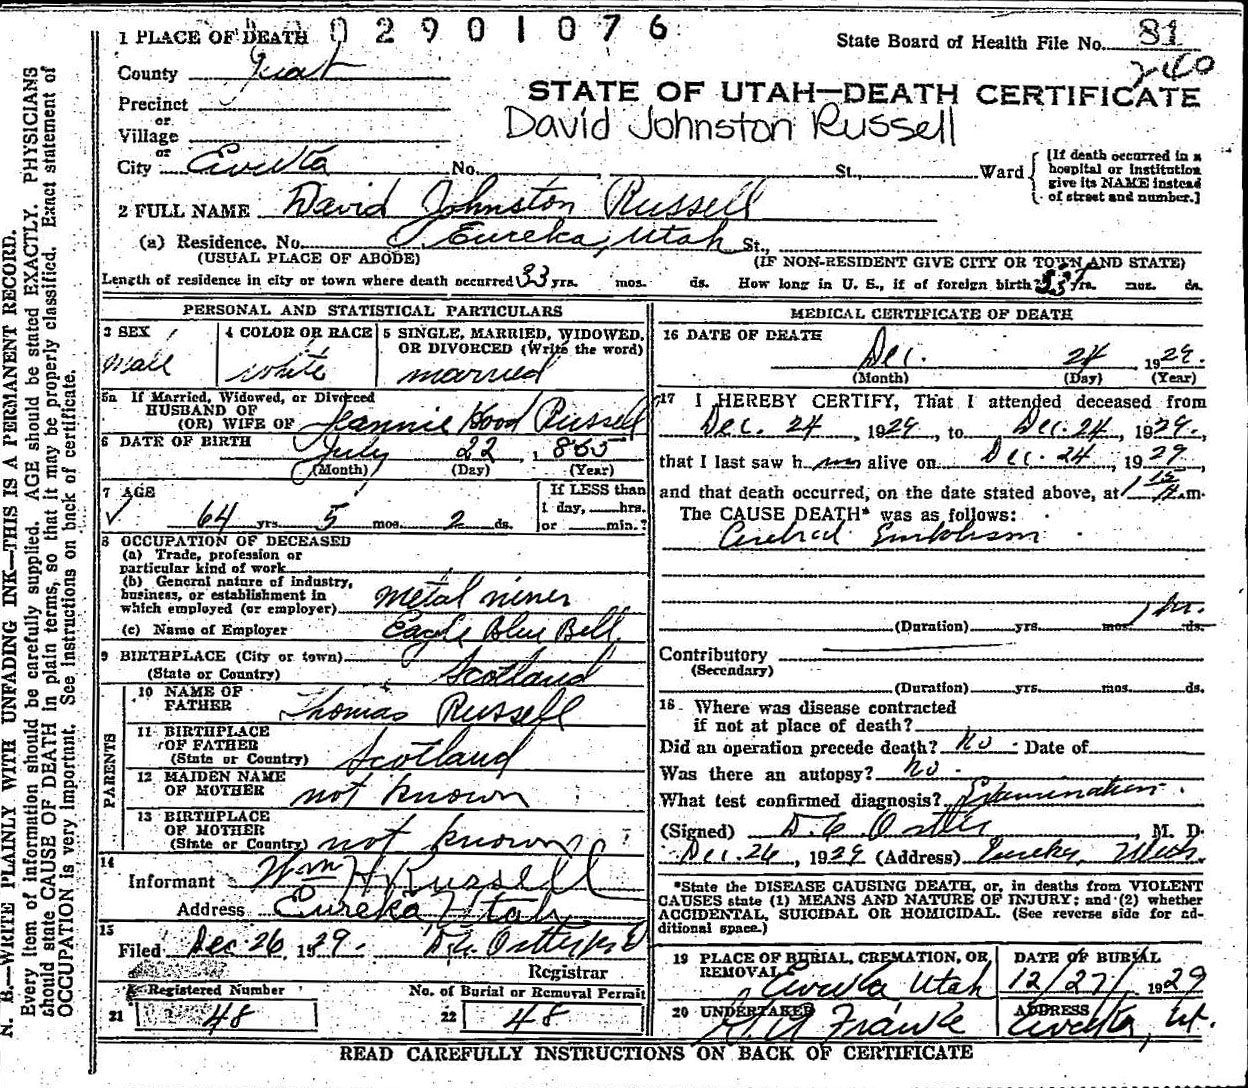 02901076
State Board of Health File No. 81
240
1 PLACE OF DEATH
County Juab
STATE OF UTAH—DEATH CERTIFICATE
Precinct
or
Village
David Johnston Russell
or
City Eureka No. St., Ward
[If death occurred in a hospital or institution give its NAME instead of street and number.]
2 FULL NAME David Johnston Russell
(a) Residence. No. Eureka, Utah St.,
(USUAL PLACE OF ABODE) (IF NON-RESIDENT GIVE CITY OR TOWN AND STATE)
Length of residence in city or town where death occurred 33 yrs. mos. ds. How long in U. S., if of foreign birth? yrs. mos. ds.
PERSONAL AND STATISTICAL PARTICULARS
3 SEX
Male
4 COLOR OR RACE
White
5 SINGLE, MARRIED, WIDOWED, OR DIVORCED (Write the word)
married
5a If Married, Widowed, or Divorced
HUSBAND OF
(OR) WIFE OF Jeannie Hood Russell
6 DATE OF BIRTH July 22, 1865
(Month) (Day) (Year)
7 AGE
64 yrs. 5 mos. 2 ds.
If LESS than
1 day,......hrs.
or ......min.?
8 OCCUPATION OF DECEASED
(a) Trade, profession or
particular kind of work
(b) General nature of industry,
business, or establishment in
which employed (or employer) metal miner
(c) Name of Employer Eagle Blue Bell
9 BIRTHPLACE (City or town)
(State or Country) Scotland
PARENTS
10 NAME OF
FATHER Thomas Russell
11 BIRTHPLACE
OF FATHER
(State or Country) Scotland
12 MAIDEN NAME
OF MOTHER not known
13 BIRTHPLACE
OF MOTHER
(State or Country) not known
14
Informant Wm H Russell
Address Eureka Utah
15
Filed Dec 26 1929.
Registrar
Registered Number
21 48
No. of Burial or Removal Permit
22 48
MEDICAL CERTIFICATE OF DEATH
16 DATE OF DEATH
Dec. 24 1929.
(Month) (Day) (Year)
17 I HEREBY CERTIFY, That I attended deceased from
Dec. 24, 1929, to Dec. 24, 1929,
that I last saw h im alive on Dec. 24, 1929,
and that death occurred, on the date stated above, at 1 15 m.
The CAUSE DEATH* was as follows:
Cerebral Embolism
1 hr.
(Duration) yrs. mos. ds.
Contributory
(Secondary)
(Duration) yrs. mos. ds.
18 Where was disease contracted
if not at place of death?
Did an operation precede death? No Date of
Was there an autopsy? No
What test confirmed diagnosis? Examination.
(Signed) M. D.
Dec. 26, 1929 (Address) Eureka, Utah
*State the DISEASE CAUSING DEATH, or, in deaths from VIOLENT
CAUSES state (1) MEANS AND NATURE OF INJURY; and (2) whether
ACCIDENTAL, SUICIDAL OR HOMICIDAL. (See reverse side for ad-
ditional space.)
19 PLACE OF BURIAL, CREMATION, OR
REMOVAL Eureka Utah
DATE OF BURIAL
12/27/1929
20 UNDERTAKER
Franke
ADDRESS
Eureka, Ut.
READ CAREFULLY INSTRUCTIONS ON BACK OF CERTIFICATE
N. B.—WRITE PLAINLY WITH UNFADING INK—THIS IS A PERMANENT RECORD.
Every item of information should be carefully supplied. AGE should be stated EXACTLY. PHYSICIANS
should state CAUSE OF DEATH in plain terms, so that it may be properly classified. Exact statement of
OCCUPATION is very important. See instructions on back of certificate.